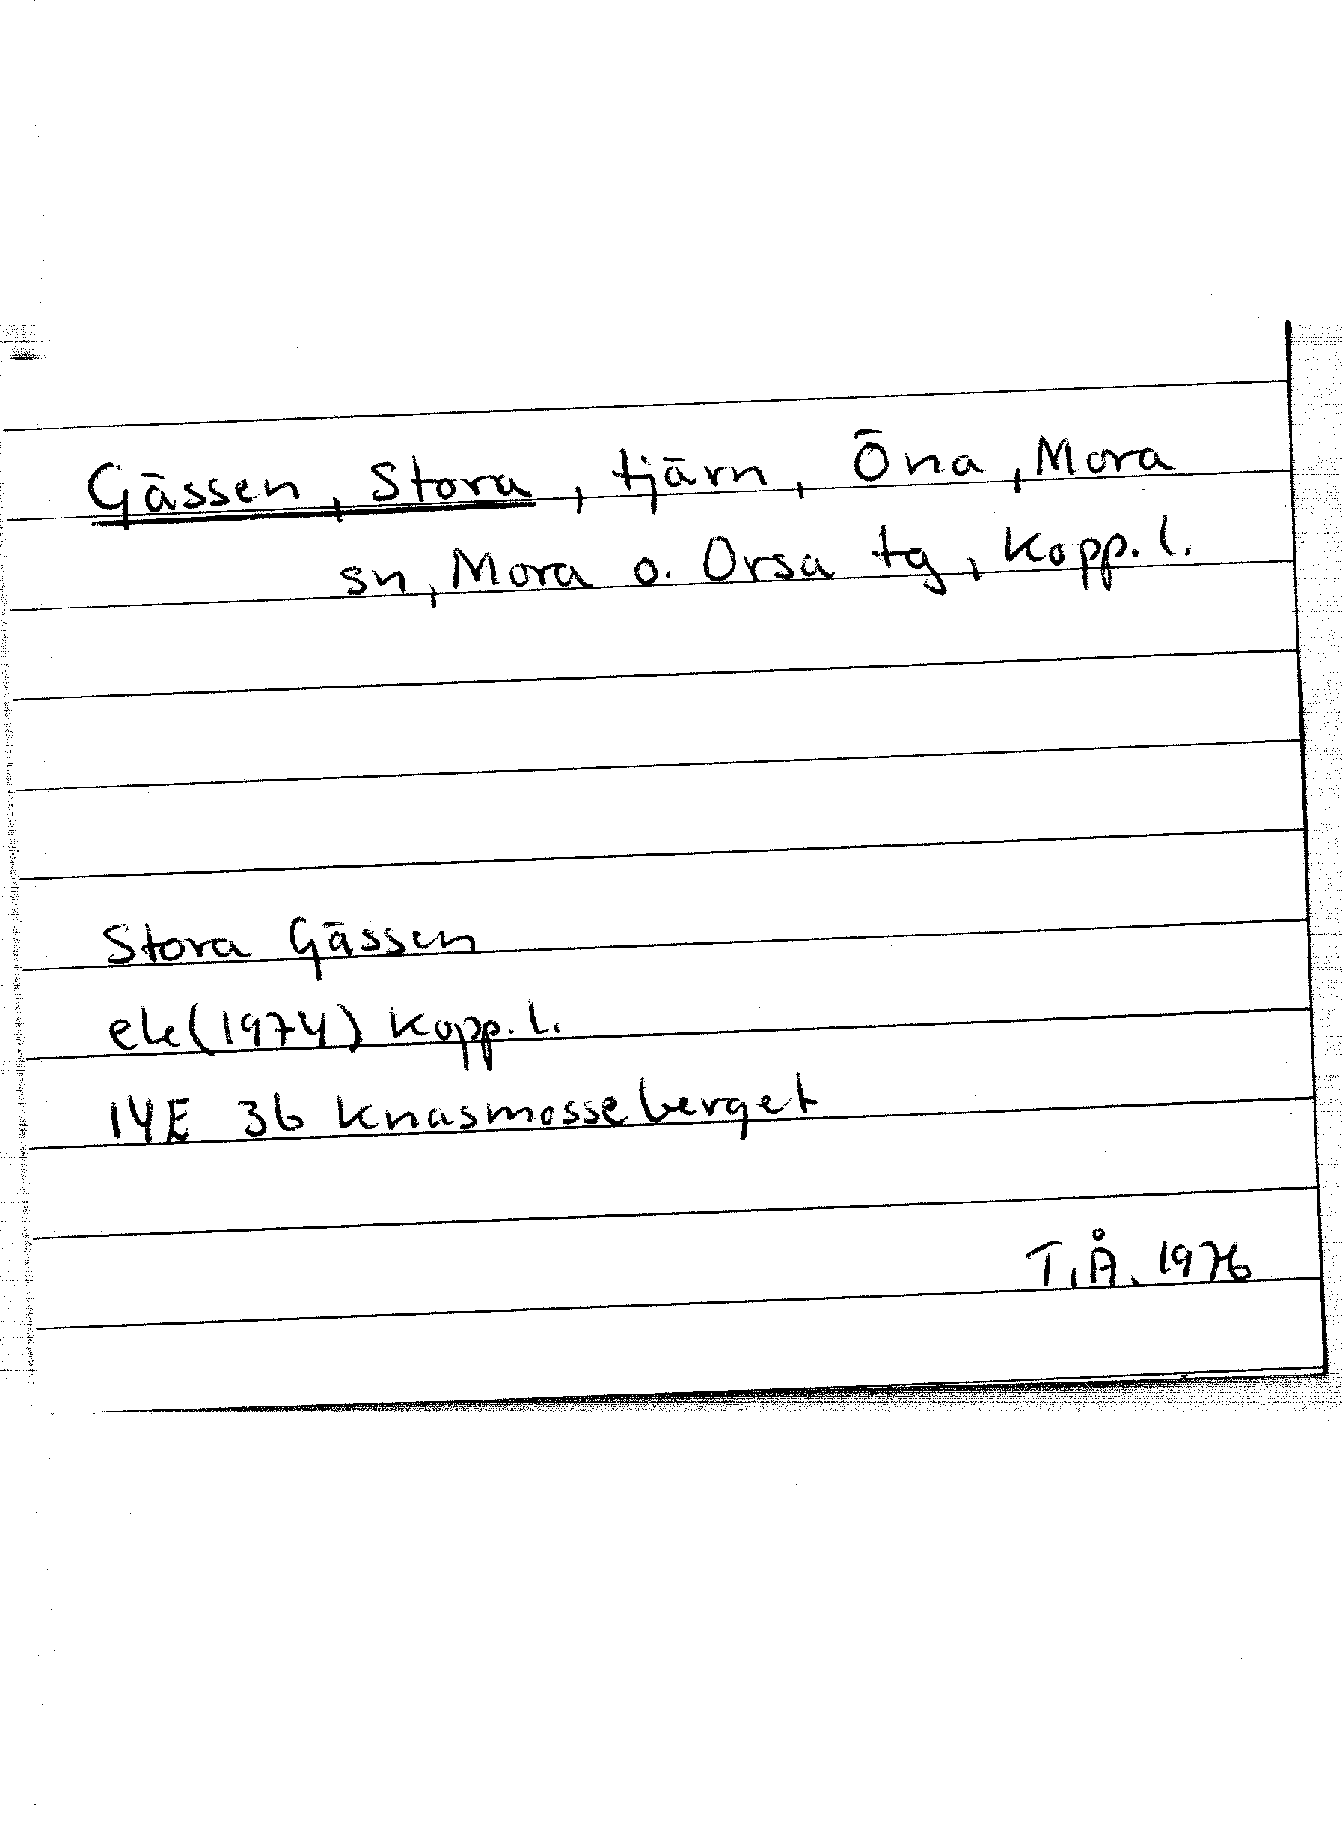 Gässen, Stora, tjärn, Öna, Mora
sn, Mora o. Orsa tg, Kopp. l.
Stora Gässen
ek (1974) Kopp. l.
14E 3b Knasmosseberget
T.Å. 1976